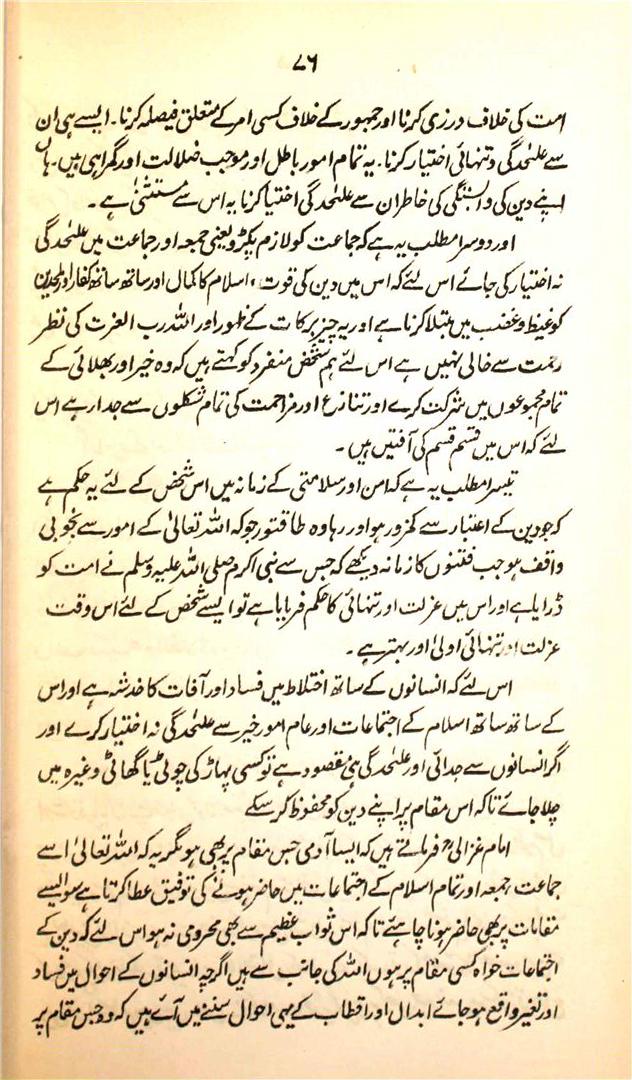 ۷۶
امت کی خلاف درزی کرنا اور جمہور کے خلاف کسی امر کے متعلق فیصلہ کرنا۔ ایسے ہی ان
سے علٰحدگی و تنہائی اختیار کرنا۔ یہ تمام امور باطل اور موجب ضلالت اور گمراہی ہیں۔ ہاں
اپنے دین کی وابستگی کی خاطر ان سے علٰحدگی اختیا کرنا یہ اس سے مستثنیٰ ہے۔
اور دوسرا مطلب یہ ہے کہ جماعت کو لازم پکڑو یعنی جمعہ اور جماعت میں علٰحدگی
نہ اختیار کی جائے اس لئے کہ اس میں دین کی قوت، اسلام کا کمال اور ساتھ ساتھ کفار اور ملحدین
کو غیظ و غضب میں مبتلا کرنا ہے اور یہ چیز برکات کے ظہور اور اللہ رب العزت کی نظر
رحمت سے خالی نہیں ہے اس لئے ہم شخص منفرد کو کہتے ہیں کہ وہ خیر اور بھلائی کے
تمام مجموعوں میں شرکت کرے اور تنازع اور مزاحمت کی تمام شکلوں سے جدا رہے اس
لئے کہ اس میں قسم قسم کی آفتیں ہیں۔
تیسرا مطلب یہ ہے کہ امن اور سلامتی کے زمانہ میں اس شخص کے لئے یہ حکم ہے
کہ جو دین کے اعتبار سے کمزور ہو اور رہا وہ طاقتور جو کہ اللہ تعالیٰ کے امور سے بخوبی
واقف ہو جب فتنوں کا زمانہ دیکھے کہ جس سے نبی اکرم صلی اللہ علیہ وسلم نے امت کو
ڈرایا ہے اور اس میں عزلت اور تنہائی کا حکم فرمایا ہے تو ایسے شخص کے لئے اس وقت
عزلت اور تنہائی اولیٰ اور بہتر ہے۔
اس لئے کہ انسانوں کے ساتھ اختلاط میں فساد اور آفات کا خدشہ ہے اور اس
کے ساتھ ساتھ اسلام کے اجتماعات اور عام امور خیر سے علٰحدگی نہ اختیار کرے اور
اگر انسانوں سے جدائی اور علٰحدگی ہی مقصود ہے تو کسی پہاڑ کی چوٹی یا گھاٹی وغیرہ میں
چلا جائے تاکہ اس مقام پر اپنے دین کو محفوظ کر سکے
امام غزالیؒ فرماتے ہیں کہ ایسا آدمی جس مقام پر بھی ہو مگر یہ کہ اللہ تعالیٰ اسے
جماعت، جمعہ اور تمام اسلام کے اجتماعات میں حاضر ہونے کی توفیق عطا کرتا ہے سو ایسے
مقامات پر بھی حاضر ہونا چاہئے تاکہ اس ثواب عظیم سے بھی محرومی نہ ہو اس لئے کہ دین کے
اجتماعات خواہ کسی مقام پر ہوں اللہ کی جانب سے ہیں اگرچہ انسانوں کے احوال میں فساد
اور تغیر واقع ہو جائے ابدال اور اقطاب کے یہی احوال سننے میں آئے ہیں کہ وہ جس مقام پر